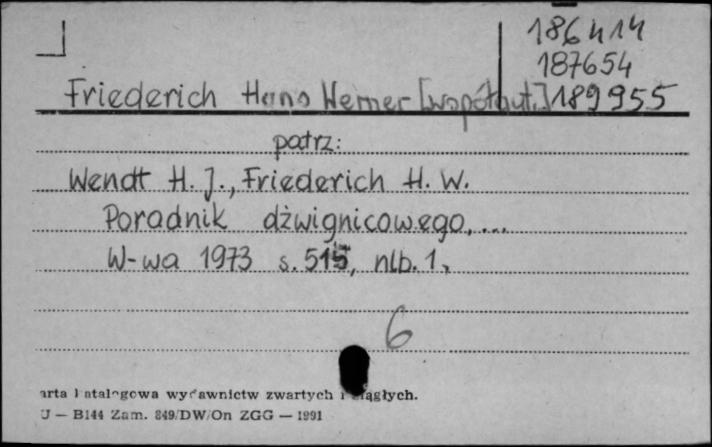 186414
187654
Friederich Hans Werner [współaut.] 189955
patrz:
Wendt H. J., Friederich H. W.
Poradnik dźwignicowego,...
W-wa 1973 s. 515, nlb. 1,
6
arta katalogowa wydawnictw zwartych i ciągłych.
U — B144 Zam. 849/DW/On ZGG — 1991